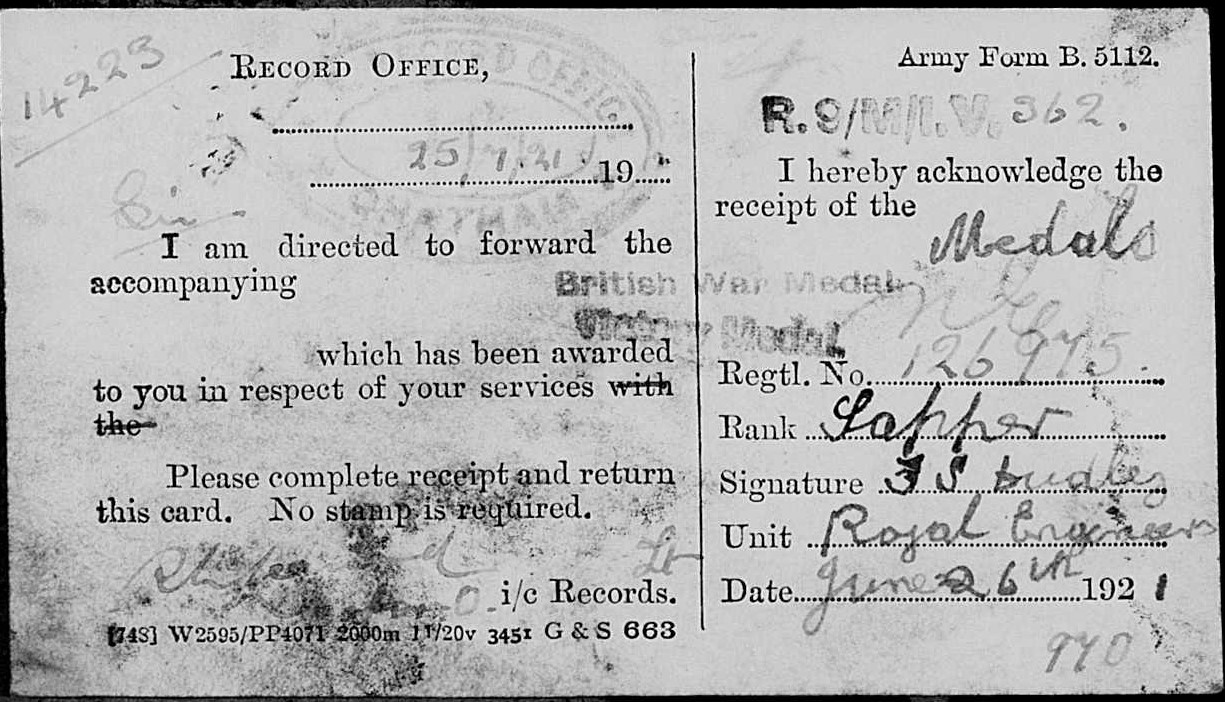 14223
RECORD OFFICE,
RECORD OFFICE
25/7/21
19
CHATHAM
Sir
I am directed to forward the
accompanying
British War Medal
Victory Medal
which has been awarded
to you in respect of your services with
the
Please complete receipt and return
this card. No stamp is required.
i/c Records.
[743] W2595/PP4071 2000m 11/20v 3451 G & S 663
Army Form B. 5112.
R.9/M/I.V. 362.
I hereby acknowledge the
receipt of the
Medals
Regtl. No. 126975
Rank Sapper
Signature F S Dudley
Unit Royal Engineers
Date June 26th 1921
970